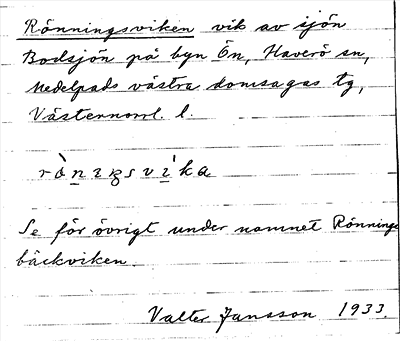 Rönningsviken vik av sjön
Bodsjön på byn Ön, Haverö sn,
Medelpads västra domsagas tg,
Västernorrl. l.
Se för övrigt under namnet Rönnings
bäckviken.
Valter Jansson 1933.